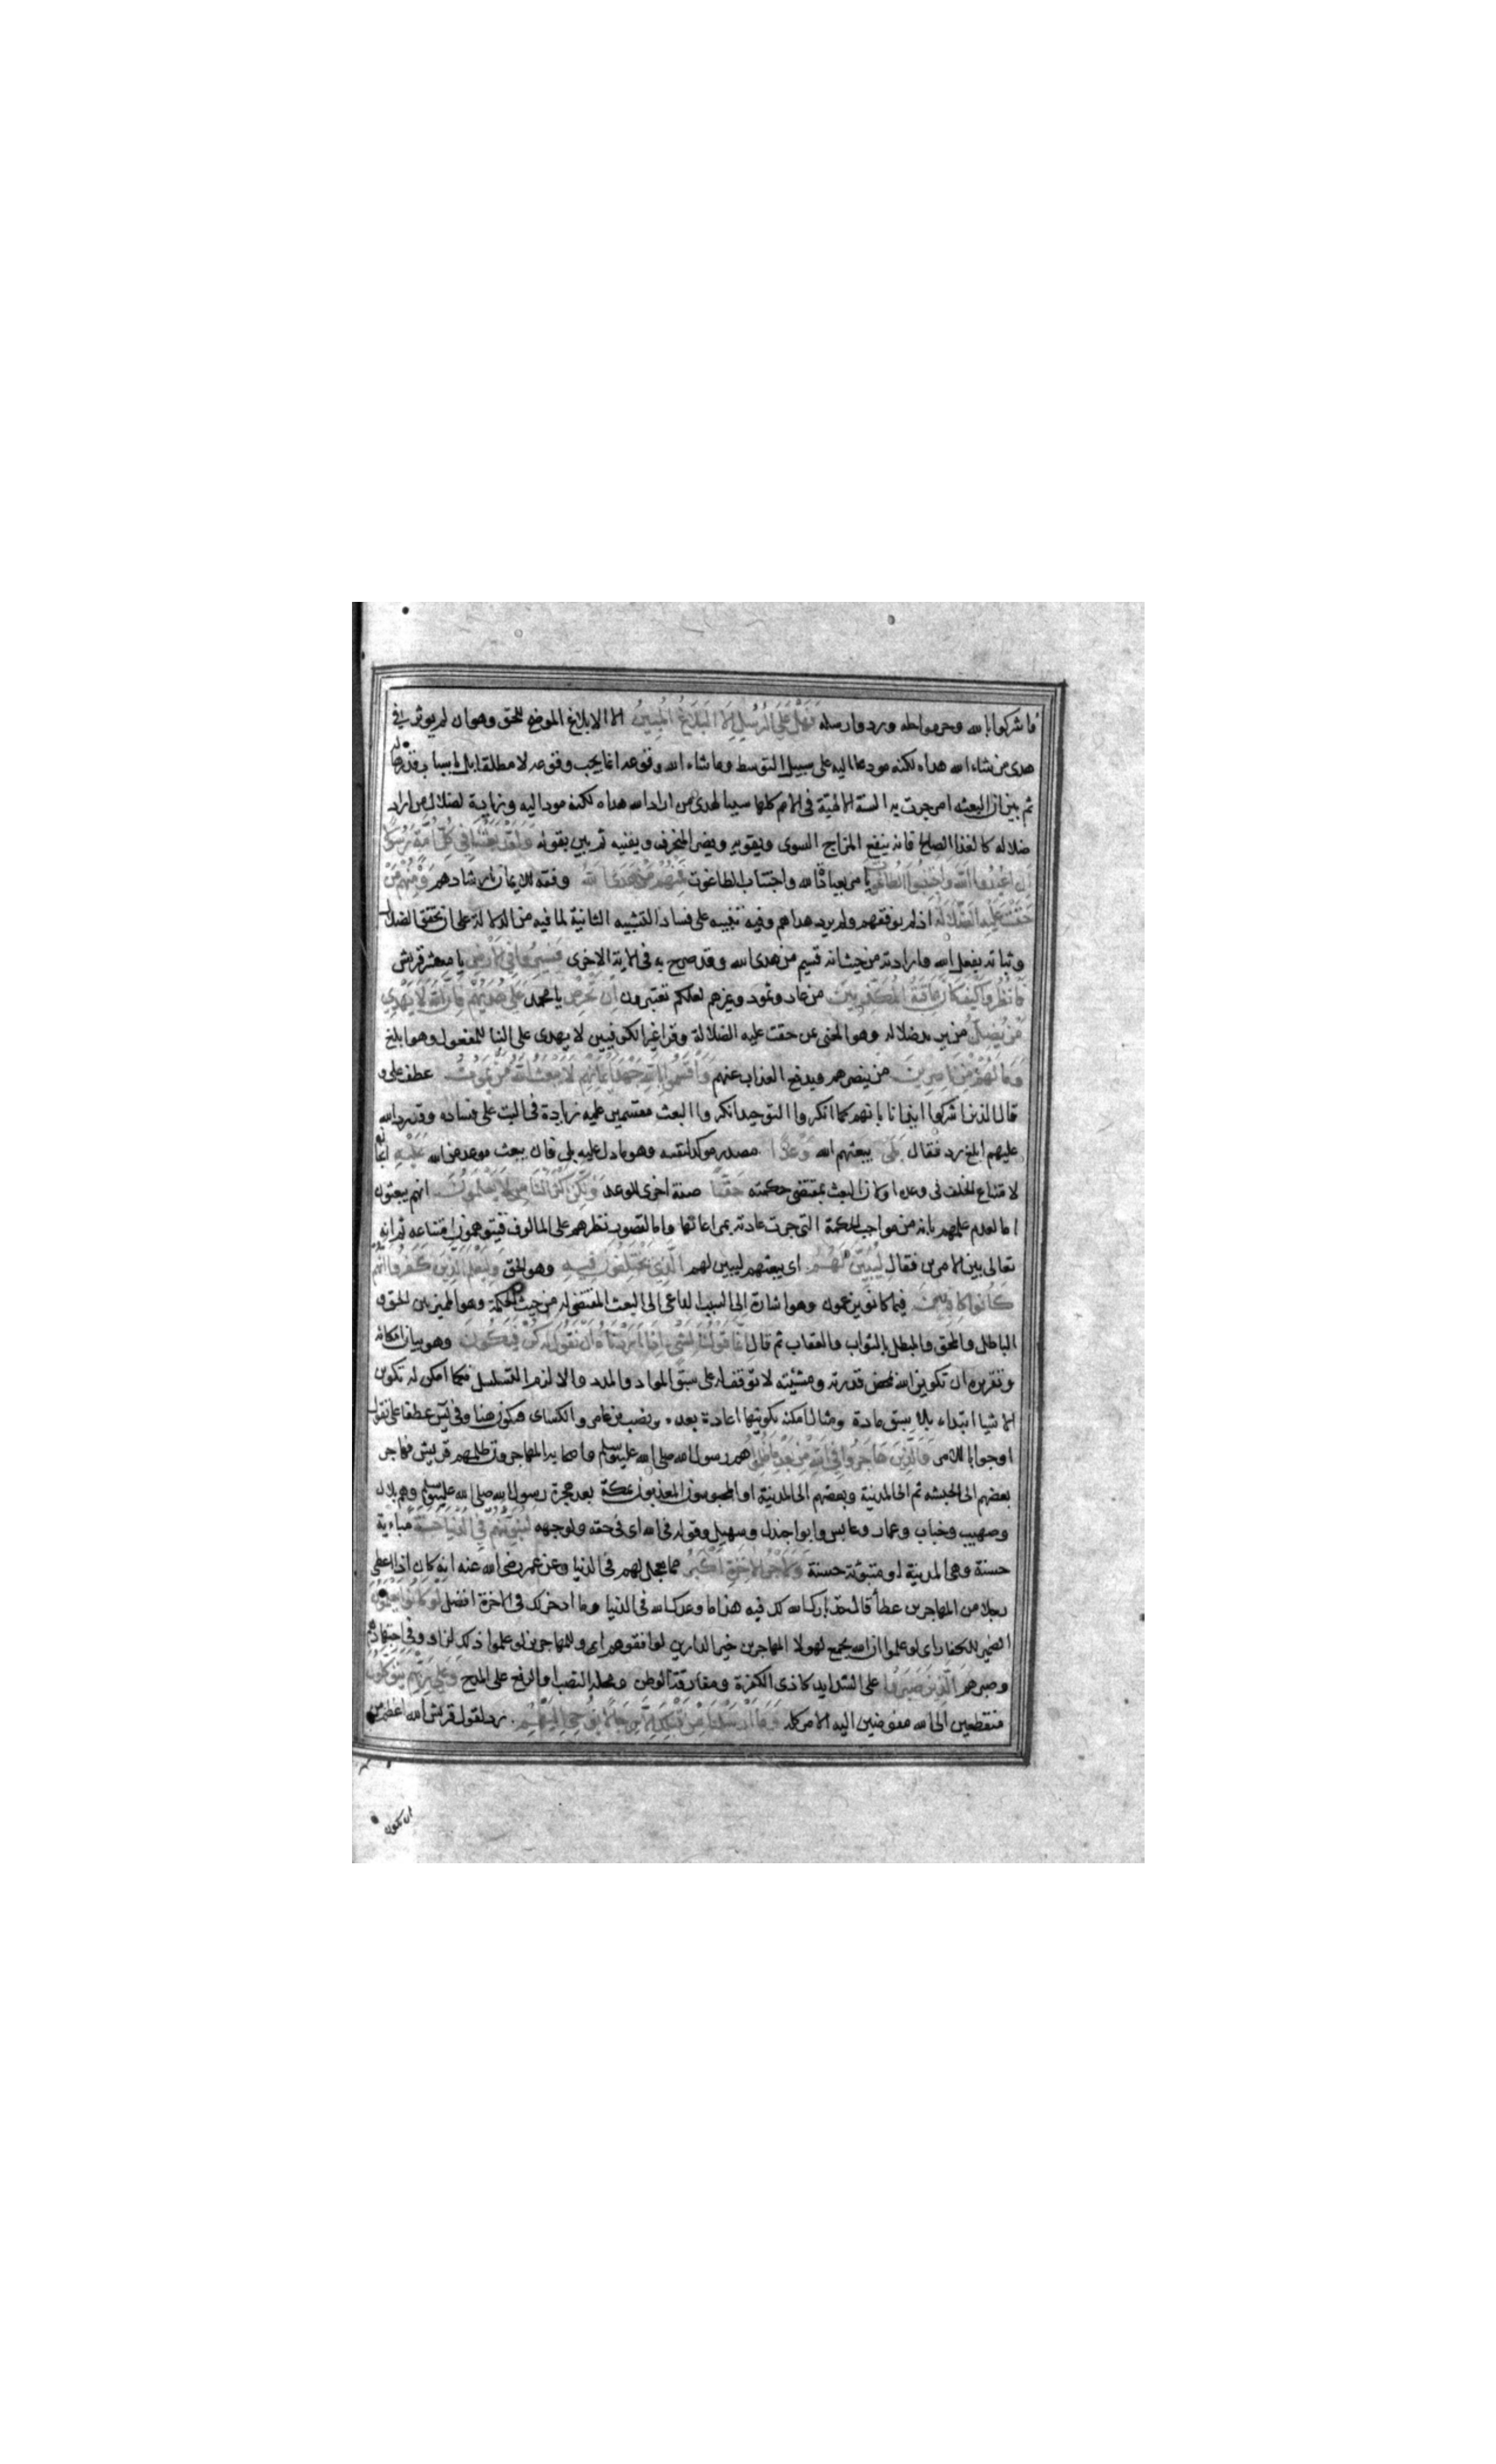 فاشركوا بالله وحرموا حله وردوا رسله فَهَلْ عَلَى الرُّسُلِ اِلَّا الْبَلَاغُ الْمُبِينُ الا الابلاغ الموضح للحق وهوان لم يوثر في
هدى من شاء الله هداه لكنه مودعا اليه على سبيل التوسط وما شاء الله وقوعه انما يجب وقوعه لا مطلقا بل باسباب قدرها له
ثم بين ان البعثه امر جرت به السنة الالهية في الامم كلها سببا لهدى من اراد الله هداه لكنه موداليه وزيادة لضلال من اراد
ضلاله كالغذا الصالح فانه ينفع المزاج السوى ويقويه ويضر المنحرف ويفنيه ثم بين بقوله وَلَقَدْ بَعَثْنَا فِي كُلِّ اُمَّةٍ رَسُولًا
اَنِ اعْبُدُوا اللَّهَ وَاجْتَنِبُوا الطَّاغُوتَ يامر بعبادة الله واجتناب الطاغوت فَمِنْهُمْ مَنْ هَدَى اللَّهُ وفقه للايمان بارشادهم وَمِنْهُمْ مَنْ
حَقَّتْ عَلَيْهِ الضَّلَالَةُ اذ لم يوفقهم ولم يرد هداهم وفيه تنبيه على فساد التشبيه الثانية لما فيه من الدلالة على ان تحقق الضلال
وثباته بفعل الله وارادته من حيث انه قسيم من هدى الله وقد صرح به في الاية الاخرى فَسِيرُوا فِي الْاَرْضِ يا معشر قريش
فَانْظُرُوا كَيْفَ كَانَ عَاقِبَةُ الْمُكَذِّبِينَ من عاد وثمود وغيرهم لعلكم تعتبرون اِنْ تَحْرِصْ يا محمد عَلَى هُدَيهُمْ فَاِنَّ اللَّهَ لَا يَهْدِي
مَنْ يُضِلُّ من يريد ضلاله وهو المعنى عن حقت عليه الضلالة وقرا غير الكوفيين لا يهدى على البنا للمفعول وهو ابلغ
وَمَا لَهُمْ مِنْ نَاصِرِينَ من ينصرهم فيدفع العذاب عنهم وَاَقْسَمُوا بِاللَّهِ جَهْدَ اَيْمَانِهِمْ لَا يَبْعَثُ اللَّهُ مَنْ يَمُوتُ عطف على و
قال الذين اشركوا ايذانا بانهم كما انكروا التوحيد انكروا البعث مقسمين عليه زيادة في البت على فساده وقد رد الله
عليهم ابلغ رد فقال بَلَى يبعثهم الله وَعْدًا مصدر موكد لنفسه وهو ما دل عليه بلى فان يبعث موعد من الله عَلَيْهِ انجازه
لامتناع الخلف في وعده او لان البعث بمقتضى حكمته حَقًّا صفة اخرى للوعد وَلَكِنَّ اَكْثَرَ النَّاسِ لَا يَعْلَمُونَ انهم يبعثون
اما لعدم علمهم بانه من مواجب الحكمة التي جرت عادته بمراعاتها واما لقصور نظرهم على المالوف فيتوهمون امتناعه ثم انه
تعالى بين الامرين فقال لِيُبَيِّنَ لَهُمْ اى يبعثهم ليبين لهم الَّذِي يَخْتَلِفُونَ فِيهِ وهو الحق وَلِيَعْلَمَ الَّذِينَ كَفَرُوا اَنَّهُمْ
كَانُوا كَاذِبِينَ فيما كانوا يزعمون وهو اشارة الى السبب الداعي الى البعث المقتضى له من حيث الحكمة وهو المميز بين الحق و
الباطل والمحق والمبطل بالثواب والعقاب ثم قال اِنَّمَا قَوْلُنَا لِشَيْءٍ اِذَا اَرَدْنَاهُ اَنْ نَقُولَ لَهُ كُنْ فَيَكُونُ وهو بيان امكانه
وتقريره ان تكوين الله بمحض قدرته ومشيئته لا توقف له على سبق المواد والمدد والا لزم التسلسل فكما امكن له تكوين
الاشيا ابتداء بلا سبق مادة ومثال امكنه تكوينها اعادة بعده ونصب بن عامر والكساى فيكون هنا وفي يس عطفا على نقول
او جوابا للامر وَالَّذِينَ هَاجَرُوا فِي اللَّهِ مِنْ بَعْدِ مَا ظُلِمُوا هم رسول الله صلى الله عليه وسلم واصحابه المهاجرون ظلمهم قريش فهاجر
بعضهم الى الحبشه ثم الى المدينة وبعضهم الى المدينة او المحبوسون المعذبون بمكة بعد هجرة رسول الله صلى الله عليه وسلم وهم بلال
وصهيب وخباب وعمار وعابس وابو جندل وسهيل وقوله في الله اى في حقه ولوجهه لَنُبَوِّئَنَّهُمْ فِي الدُّنْيَا حَسَنَةً مباءية
حسنة وهى المدينة او متبوئة حسنة وَلَاَجْرُ الْاخِرَةِ اَكْبَرُ مما يعجل لهم في الدنيا وعن عمر رضى الله عنه انه كان اذا اعطى
رجلا من المهاجرين عطأ قال خذ بارك الله لك فيه هذا ما وعدك الله في الدنيا وما ادخر لك في الاخرة افضل لَوْ كَانُوا يَعْلَمُونَ
الضمير للكفار اى لو علموا ان الله يجمع لهولا المهاجرين خير الدارين لوافقوهم او للمهاجرين لو علموا ذلك لزادو في اجتهادهم
وصبرهم الَّذِينَ صَبَرُوا على الشدايد كاذى الكفرة ومفارقة الوطن ومحله النصب او الرفع على المدح وَعَلَى رَبِّهِمْ يَتَوَكَّلُونَ
منقطعين الى الله مفوضين اليه الامر كله وَمَا اَرْسَلْنَا مِنْ قَبْلِكَ اِلَّا رِجَالًا نُوحِي اِلَيْهِمْ رد لقول قريش الله اعظم من
ان يكون